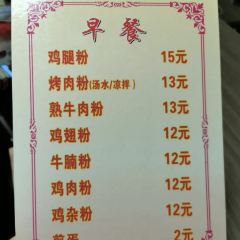 早餐
鸡腿粉 15元
烤肉粉(汤水/凉拌) 13元
熟牛肉粉 13元
鸡翅粉 12元
牛腩粉 12元
鸡肉粉 12元
鸡杂粉 12元
煎蛋 2元